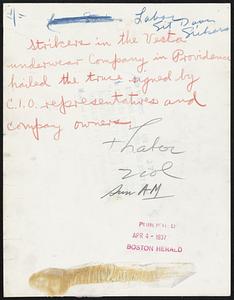 Labor
Sit Down
Strikers in the Vesta
underwear Company in Providence
hailed the truce signed by
C.I.O. representatives and
company owners
Thater
2 col
Sun AM
PUBLISHED
APR 4 - 1937
BOSTON HERALD